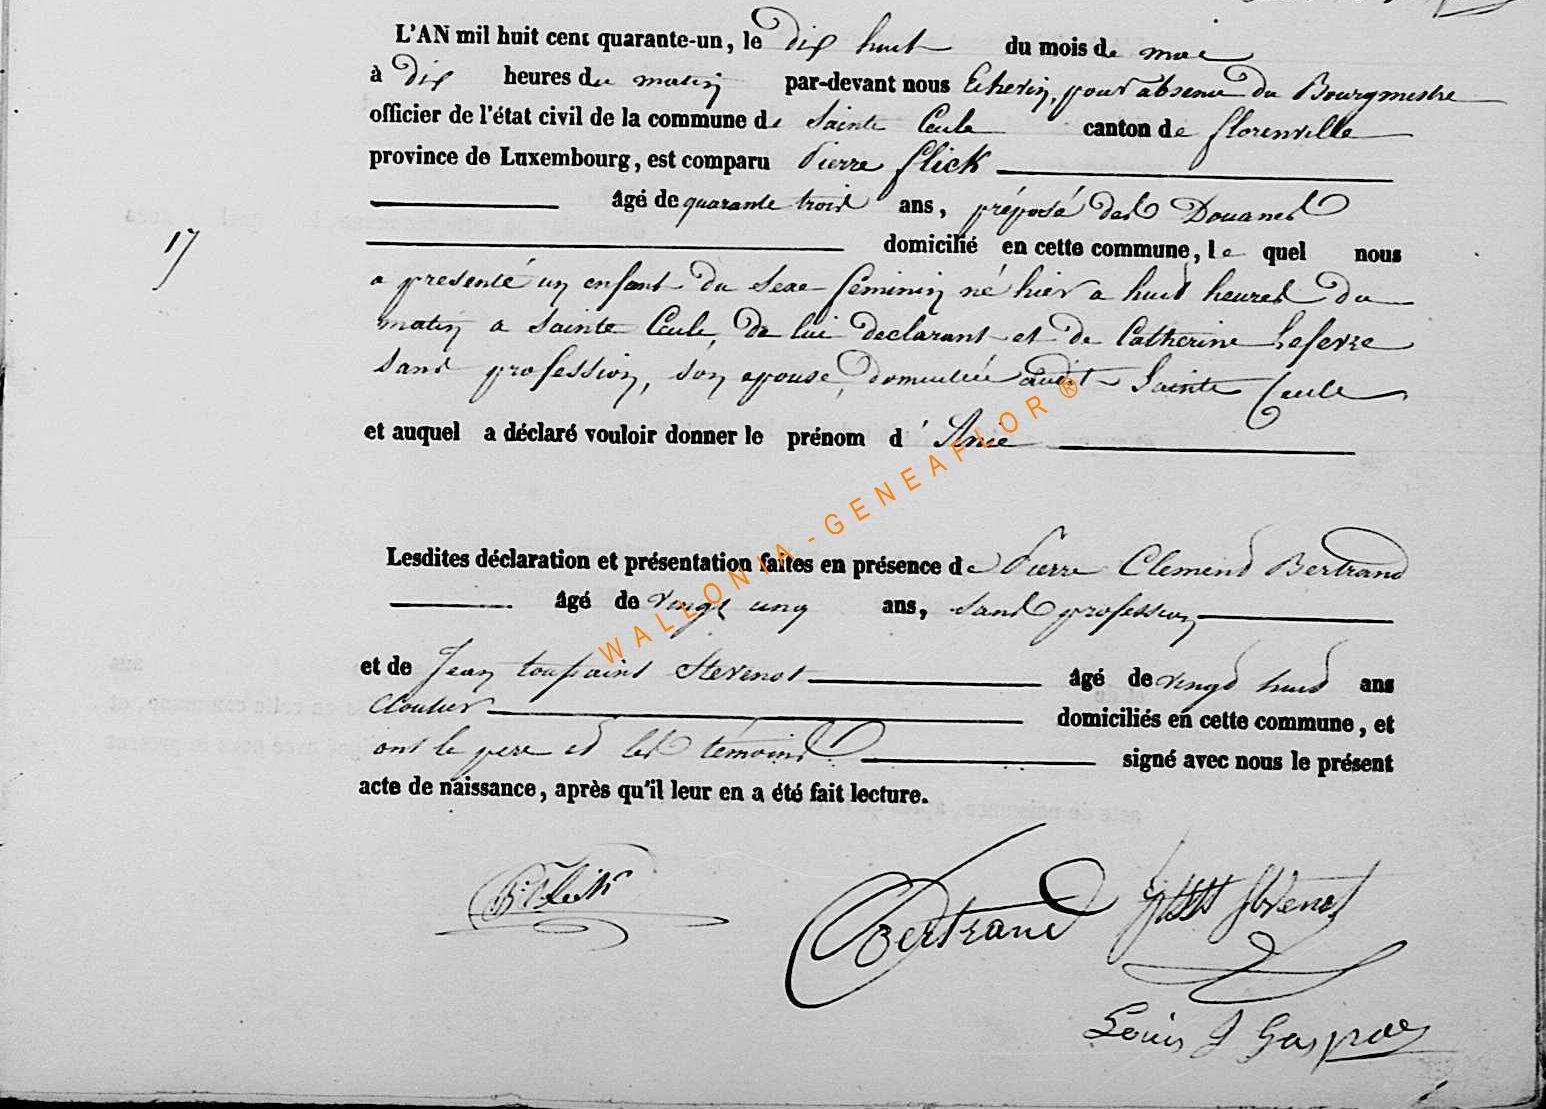 L'AN mil huit cent quarante-un, le dix huit du mois de mai
à dix heures du matin par-devant nous Echevin, pour absence du Bourgmestre
officier de l'état civil de la commune de Sainte Cecile canton de florenville
province de Luxembourg, est comparu Pierre flick
âgé de quarante trois ans, préposé des Douanes
17
domicilié en cette commune, le quel nous
a presenté un enfant du sexe feminin né hier a huit heures du
matin a Sainte Cecile, de lui declarant et de Catherine Lefevre
sans profession, son epouse, domiciliée audit Sainte Cecile
et auquel a déclaré vouloir donner le prénom d'
Lesdites déclaration et présentation faites en présence de Pierre Clement Bertrand
âgé de vingt cinq ans, sans profession
et de Jean toussaint Stevenot âgé de vingt huit ans
Cloutier domiciliés en cette commune, et
ont le pere et les témoins signé avec nous le présent
acte de naissance, après qu'il leur en a été fait lecture.
Flick
Bertrand Stevenot
Louis J Gaspar
WALLONIA - GENEAFLOR ®